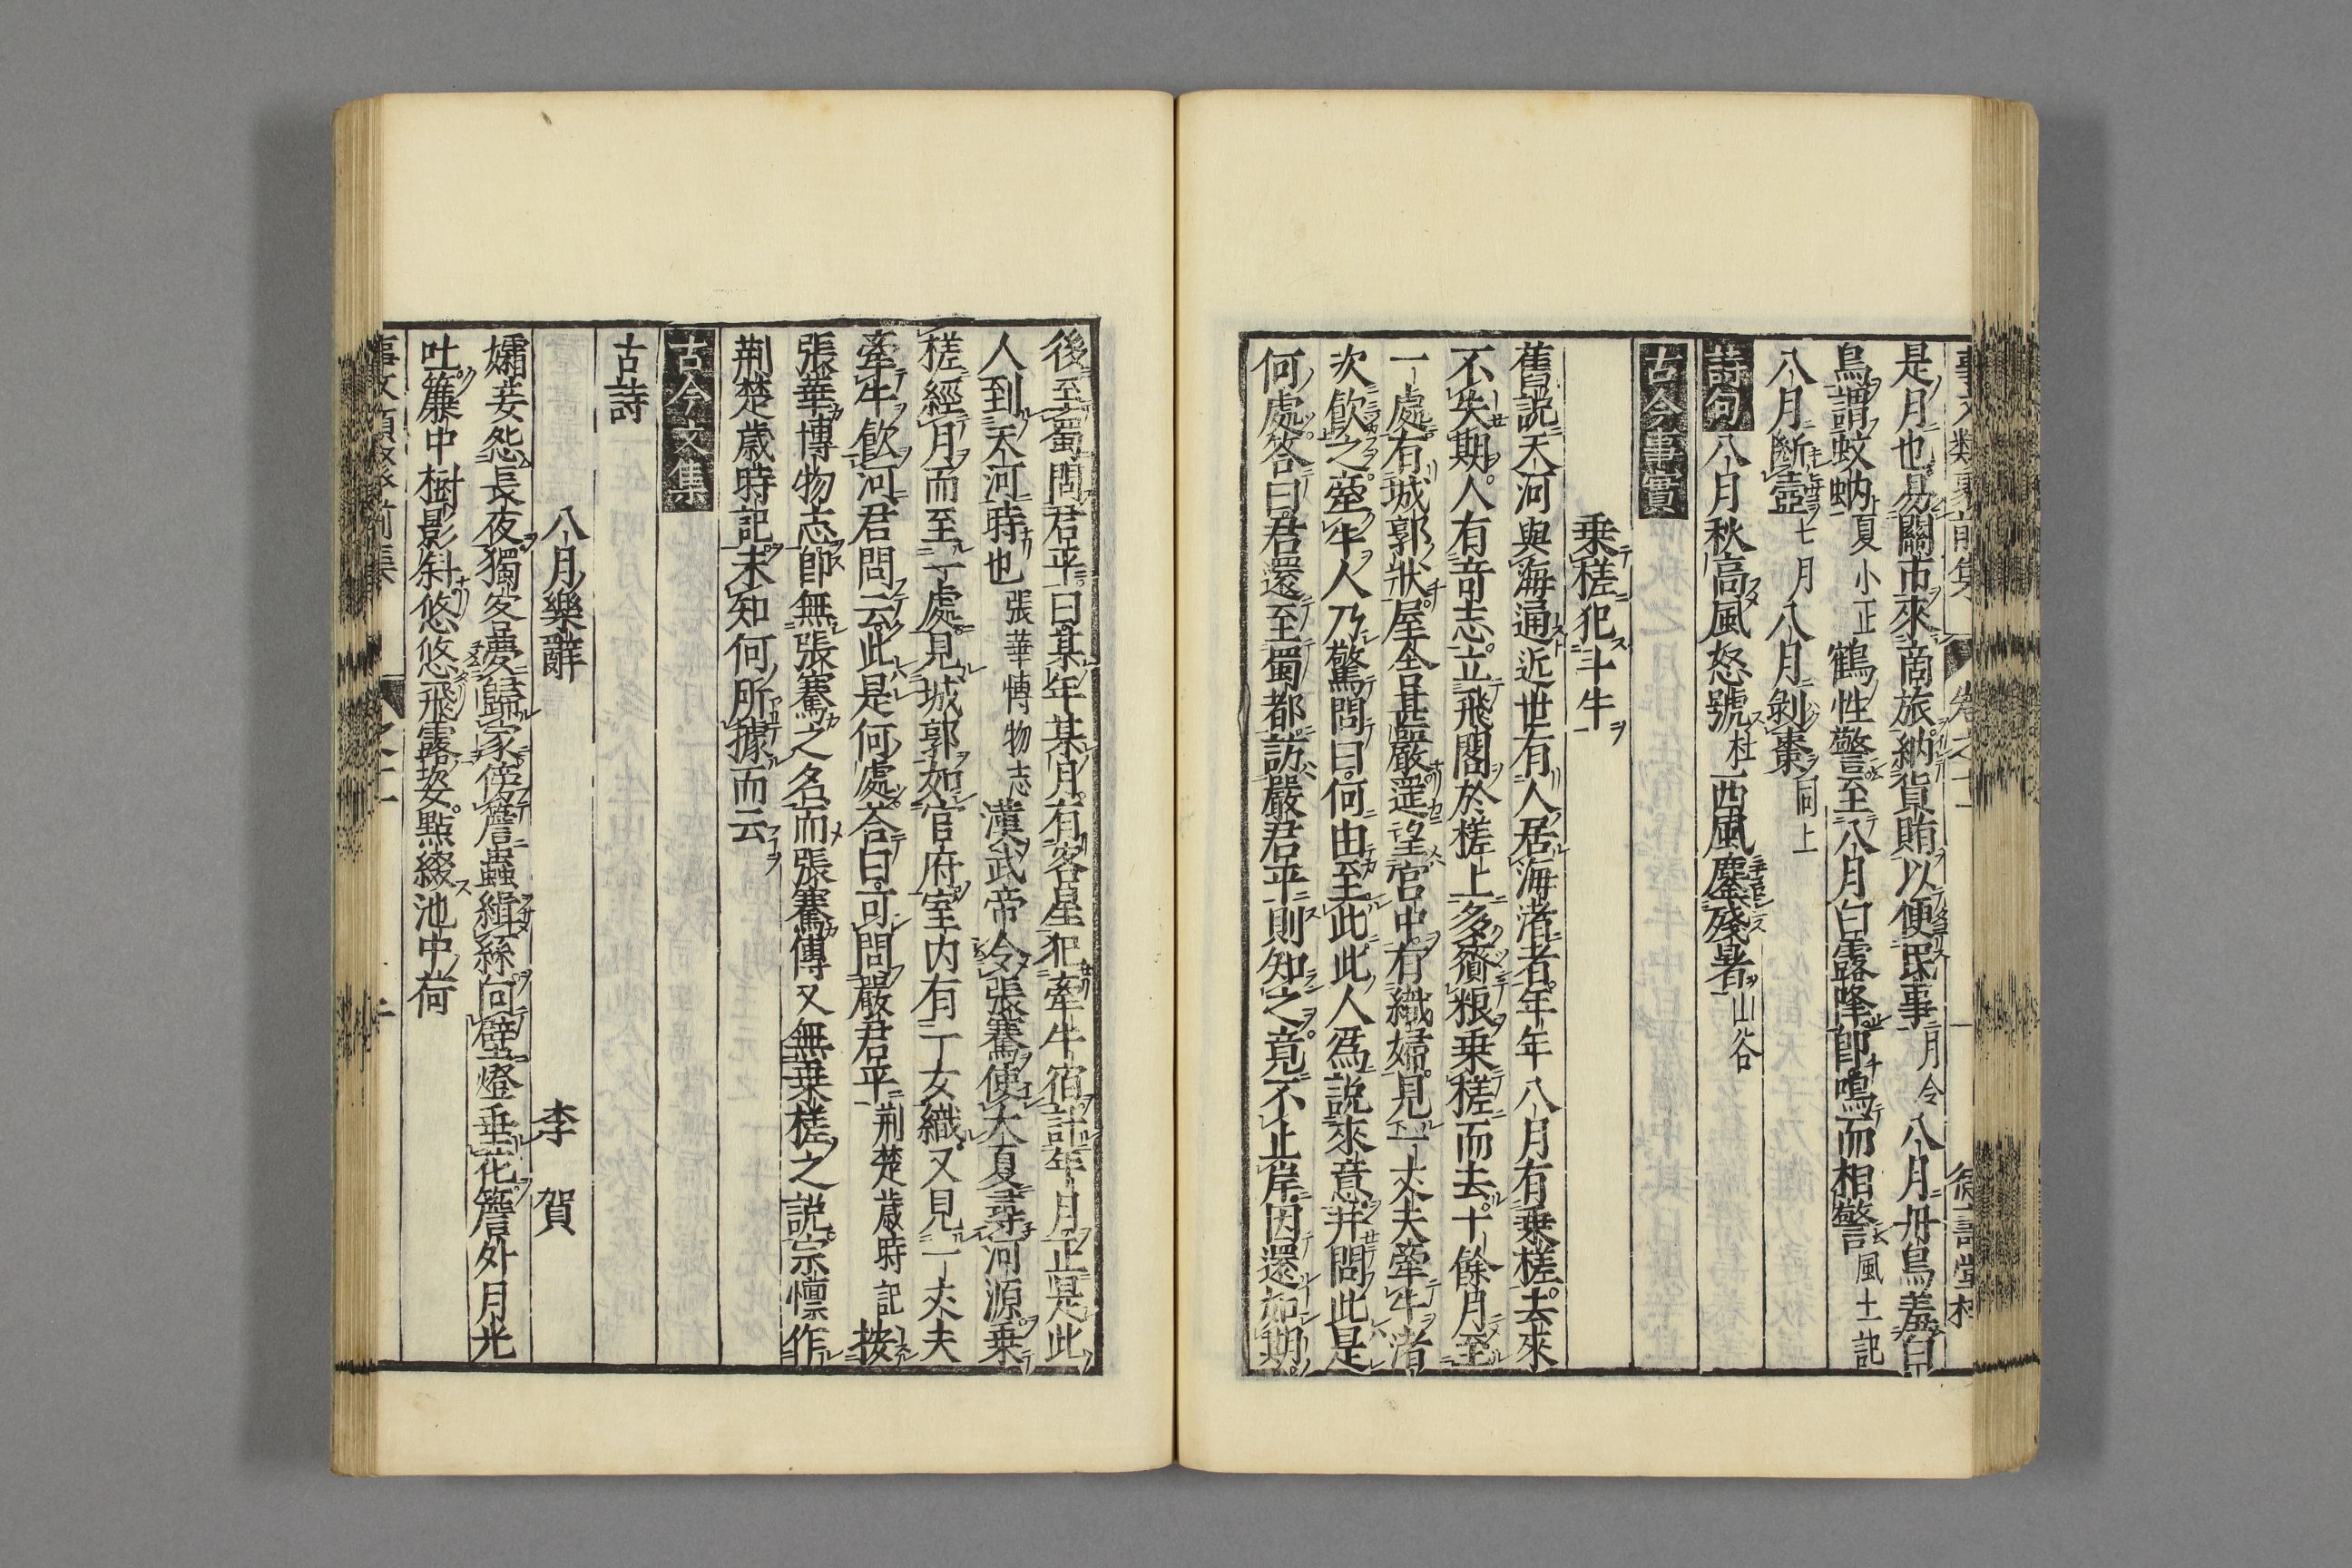 是月也易關市來商旅納貨賄以便民事月令八月丹鳥羞白
鳥謂蚊蚋夏小正鶴性警至八月白露降即鳴而相警風土記
八月斷壺七月八月剝棗同上
詩句八月秋高風怒號杜西風鏖殘暑山谷
古今事實
乗槎犯斗牛
舊説天河與海通近世有人居海渚者年年八月有乗槎去來
不失期人有竒志立飛閣於槎上多齎粮乗槎而去十餘月至
一處有城郭狀屋舎甚嚴遥望宫中有織婦見一丈夫牽牛渚
次飲之牽牛人乃驚問曰何由至此此人爲説來意并問此是
何處答曰君還至蜀都訪嚴君平則知之竟不止岸因還如期
後至蜀問君平曰某年某月有客星犯牽牛宿計年月正是此
人到天河時也張華愽物志漢武帝令張騫使大夏尋河源乗
槎經月而至一處見城郭如官府室内有一女織又見一丈夫
牽牛飲河君問云此是何處答曰可問嚴君平荆楚歳時記按
張華博物志即無張騫之名而張騫傳又無乗槎之説宗懍作
荆楚歳時記未知何所據而云
古今文集
古詩
八月樂辭 李賀
孀妾怨長夜獨客夢歸家傍簷蟲緝絲向壁燈垂花簷外月光
吐簾中樹影斜悠悠飛露姿點綴池中荷